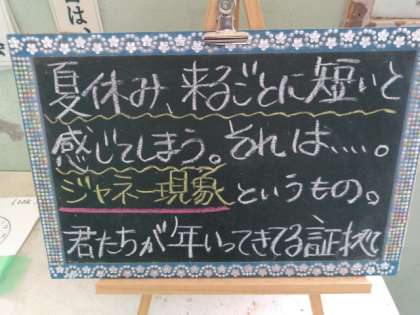 夏休み、来るごとに短いと
感じてしまう。それは....。
ジャネー現象というもの。
君たちが年いってきてる証拠で